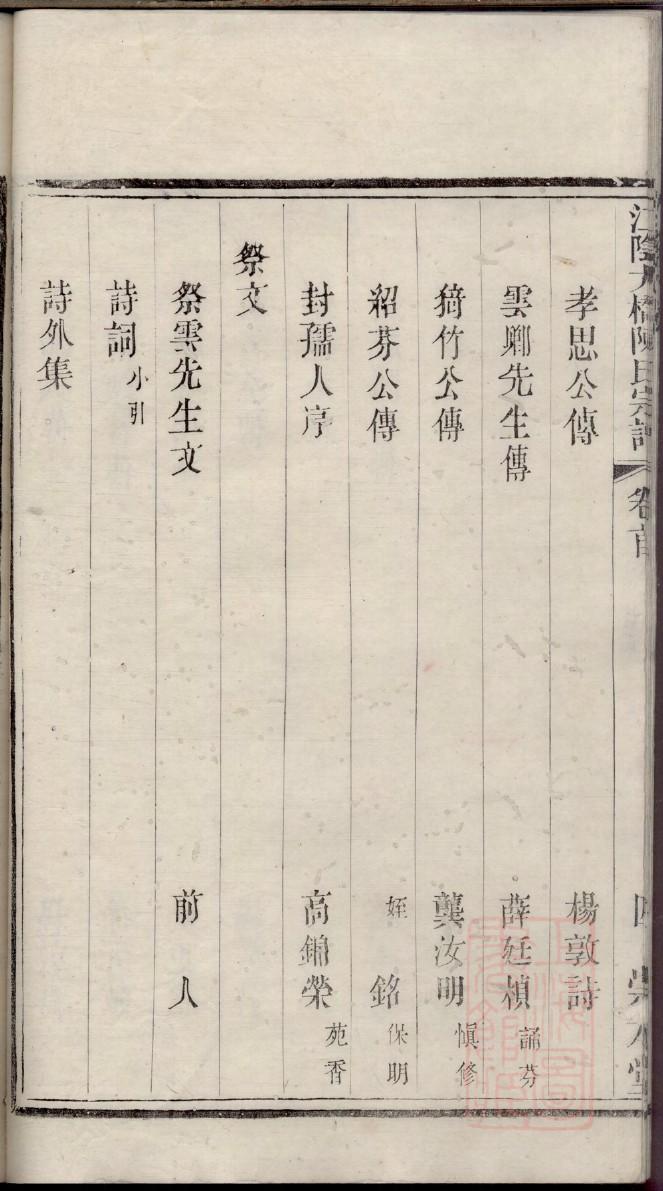 江陰大橋陳氏宗譜 卷首 四
孝思公傳 楊敦詩
雲鄉先生傳 薛廷楨 誦芬
猗竹公傳 龔汝明 慎修
紹芬公傳 姪 銘 保明
封孺人序 高錦榮 苑香
祭文
祭雲先生文 前人
詩詞 小引
詩外集